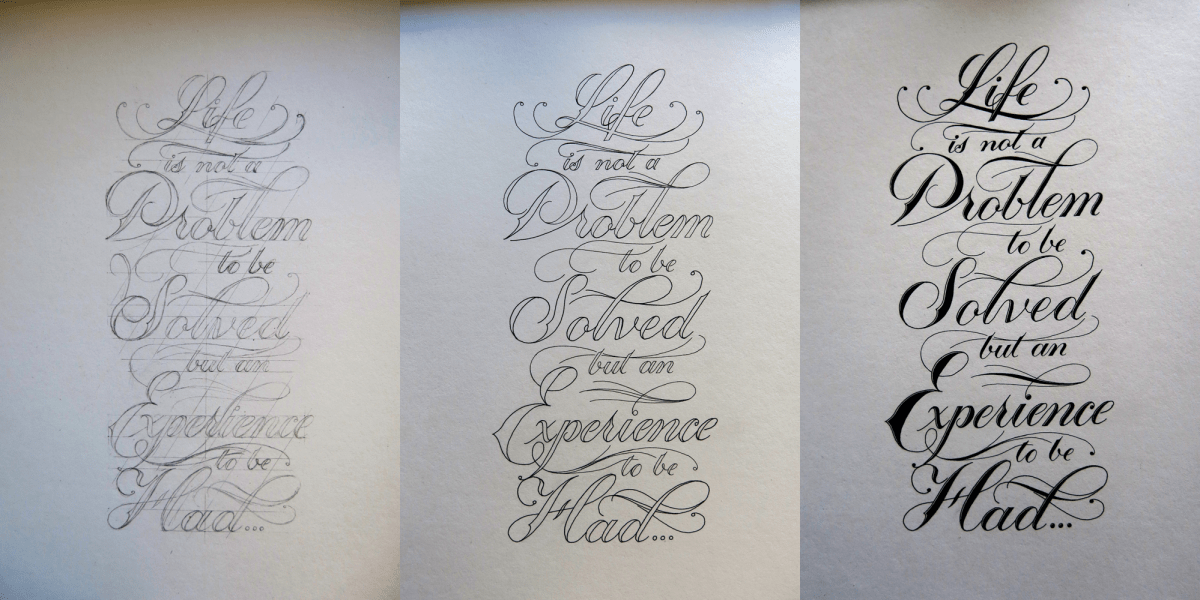 Life
is not a
Problem
to be
Solved
but an
Experience
to be
Had...
Life
is not a
Problem
to be
Solved
but an
Experience
to be
Had...
Life
is not a
Problem
to be
Solved
but an
Experience
to be
Had...